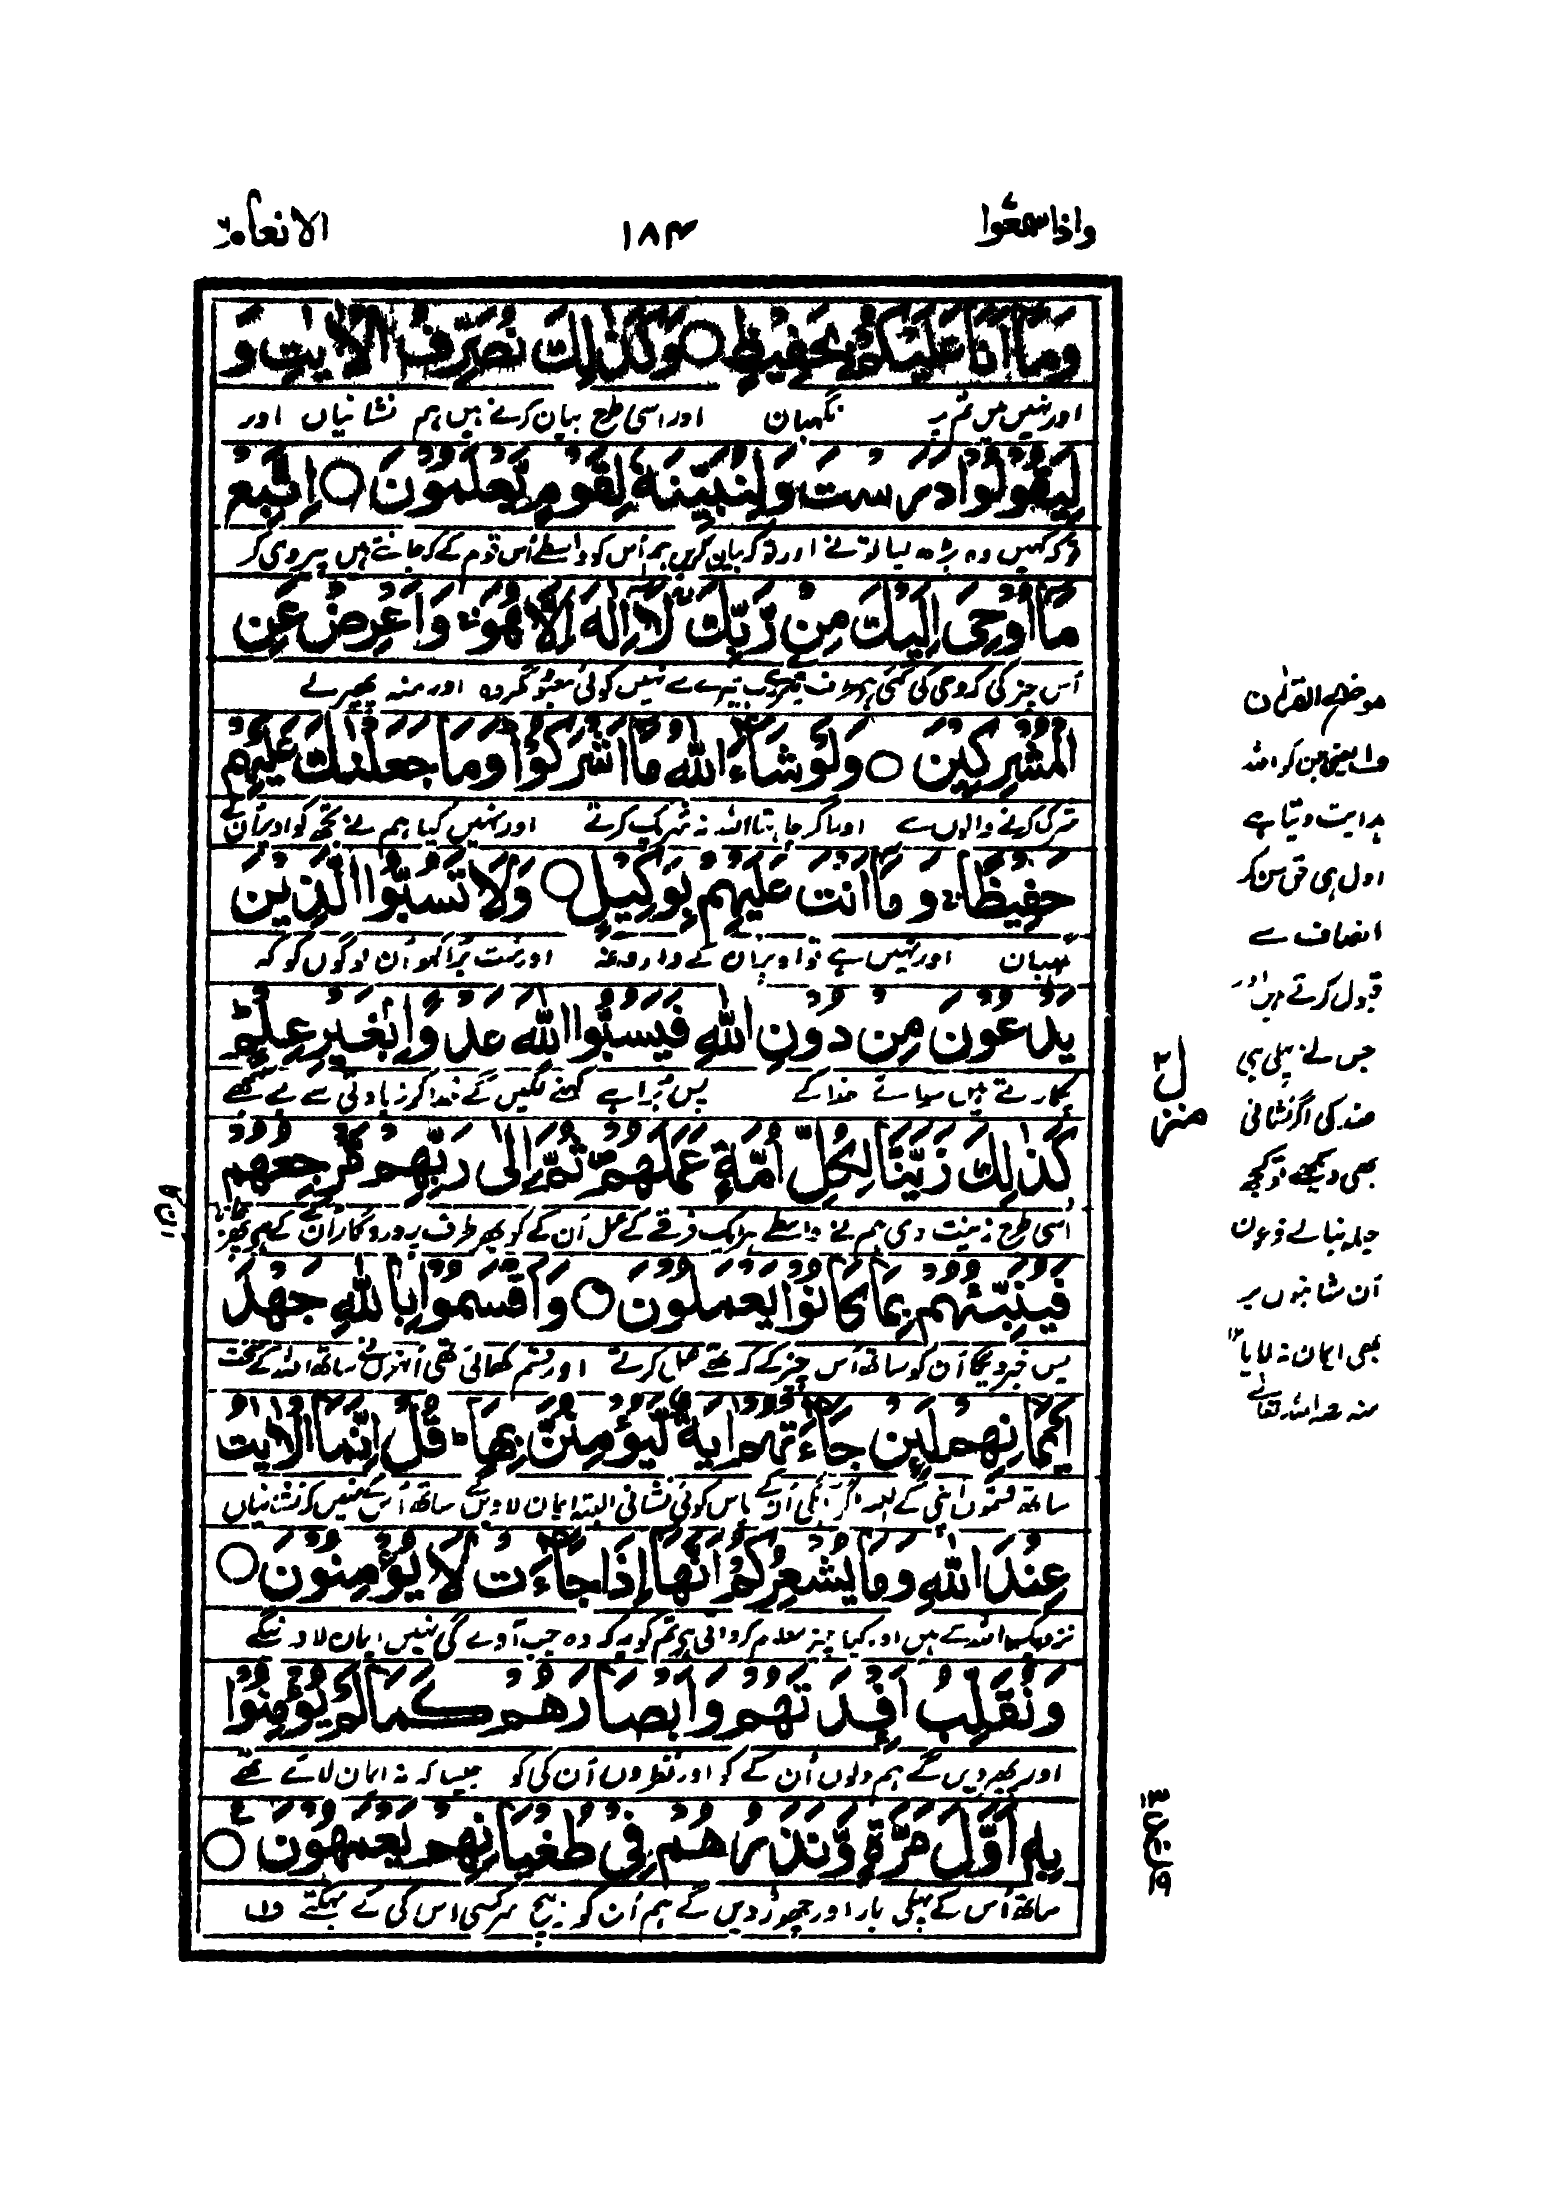 واذا سمعوا
۱۸۴
الانعام ۶
وَمَآ اَنَا عَلَيْكُمْ بِحَفِيْظٍ ○ وَكَذٰلِكَ نُصَرِّفُ الْاٰيٰتِ وَ
اور نہیں میں تم پر نگہبان اور اسی طرح بیان کرتے ہیں ہم نشانیاں اور
لِيَقُوْلُوْا دَرَسْتَ وَلِنُبَيِّنَهٗ لِقَوْمٍ يَّعْلَمُوْنَ ○ اِتَّبِعْ
تو کہ کہیں وہ پڑھ لیا تو نے اور تو کہ بیان کریں ہم اُس کو واسطے اُس قوم کے کہ جانتے ہیں پیروی کر
مَآ اُوْحِىَ اِلَيْكَ مِنْ رَّبِّكَ لَآ اِلٰهَ اِلَّا هُوَ وَاَعْرِضْ عَنِ
اُس چیز کی کہ وحی کی گئی ہے طرف تیری رب تیرے سے نہیں کوئی معبود مگر وہ اور منہ پھیر لے
الْمُشْرِكِيْنَ ○ وَلَوْ شَآءَ اللّٰهُ مَآ اَشْرَكُوْا وَمَا جَعَلْنٰكَ عَلَيْهِمْ
شرک کرنے والوں سے اور اگر چاہتا اللہ نہ شریک کرتے اور نہیں کیا ہم نے تجھ کو اوپر اُن کے
حَفِيْظًا وَمَآ اَنْتَ عَلَيْهِمْ بِوَكِيْلٍ ○ وَلَا تَسُبُّوا الَّذِيْنَ
نگہبان اور نہیں ہے تو اوپر ان کے داروغہ اور مت بُرا کہو اُن لوگوں کو کہ
يَدْعُوْنَ مِنْ دُوْنِ اللّٰهِ فَيَسُبُّوا اللّٰهَ عَدْوًۢا بِغَيْرِ عِلْمٍ ط
پکارتے ہیں سوائے خدا کے پس بُرا ہے کہنے لگیں گے خدا کو زیادتی سے بے سمجھے
كَذٰلِكَ زَيَّنَّا لِكُلِّ اُمَّةٍ عَمَلَهُمْ ثُمَّ اِلٰى رَبِّهِمْ مَّرْجِعُهُمْ
اُسی طرح زینت دی ہم نے واسطے ہر ایک فرقے کے عمل اُن کے کو پھر طرف پروردگار اُن کے ہے پھر جانا
فَيُنَبِّئُهُمْ بِمَا كَانُوْا يَعْمَلُوْنَ ○ وَاَقْسَمُوْا بِاللّٰهِ جَهْدَ
پس خبر دیگا اُن کو ساتھ اُس چیز کے کہ تھے عمل کرتے اور قسم کھائی تھی اُنہوں نے ساتھ اللہ کے سخت
اَيْمَانِهِمْ لَئِنْ جَآءَتْهُمْ اٰيَةٌ لَّيُؤْمِنُنَّ بِهَا ط قُلْ اِنَّمَا الْاٰيٰتُ
ساتھ قسموں اپنی کے البتہ اگر آئیگی اُن کے پاس کوئی نشانی البتہ ایمان لاویں گے ساتھ اُس کے کہہ نشانیاں
عِنْدَ اللّٰهِ وَمَا يُشْعِرُكُمْ اَنَّهَآ اِذَا جَآءَتْ لَا يُؤْمِنُوْنَ ○
نزدیک اللہ کے ہیں اور کیا چیز معلوم کرواتی ہے تم کو یہ کہ وہ جب آوے گی نہیں ایمان لاوینگے
وَنُقَلِّبُ اَفْـِٕدَتَهُمْ وَاَبْصَارَهُمْ كَمَا لَمْ يُؤْمِنُوْا
اور پھیر دیں گے ہم دلوں اُن کے کو اور نظروں اُن کی کو جیسا کہ نہ ایمان لائے تھے
بِهٖٓ اَوَّلَ مَرَّةٍ وَّنَذَرُهُمْ فِىْ طُغْيَانِهِمْ يَعْمَهُوْنَ ○
ساتھ اُس کے پہلی بار اور چھوڑ دیں گے ہم اُن کو بیچ سرکشی اُس کی کے بہکتے ف۱
موضح القرآن
ف۱ یعنی جن کو اللہ
ہدایت دیتا ہے
اول ہی حق سن کر
انصاف سے
قبول کرتے ہیں اور
جس نے پہلی ہی
ضد کی اگر نشانی
بھی دیکھے تو کچھ
حیلہ بنا لے فرعون
ان نشانیوں پر
بھی ایمان نہ لایا ۱۲
منہ رحمہ اللہ تعالےٰ
منزل ۲